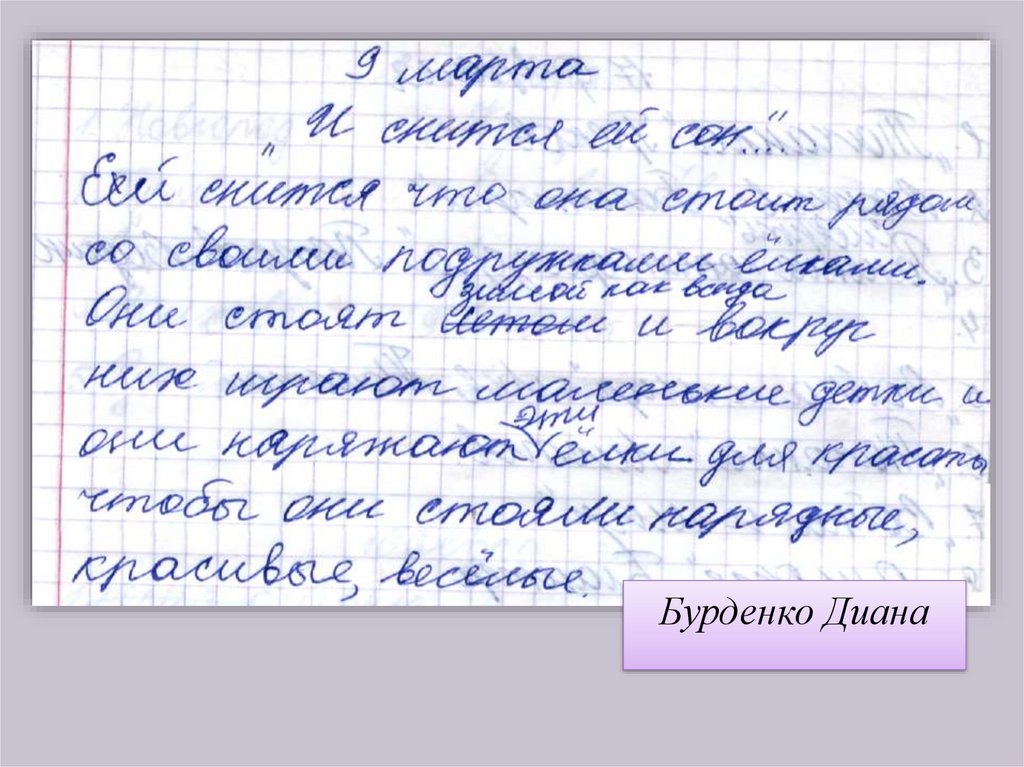 9 марта
„И снится ей сон...."
Ей снится что она стоит рядом
со своими подружками ёлками.
зимой как всегда
Они стоят летом и вокруг
них играют маленькие детки и
эти
они наряжают ёлки для красоты
чтобы они стояли нарядные,
красивые, весёлые.
Бурденко Диана